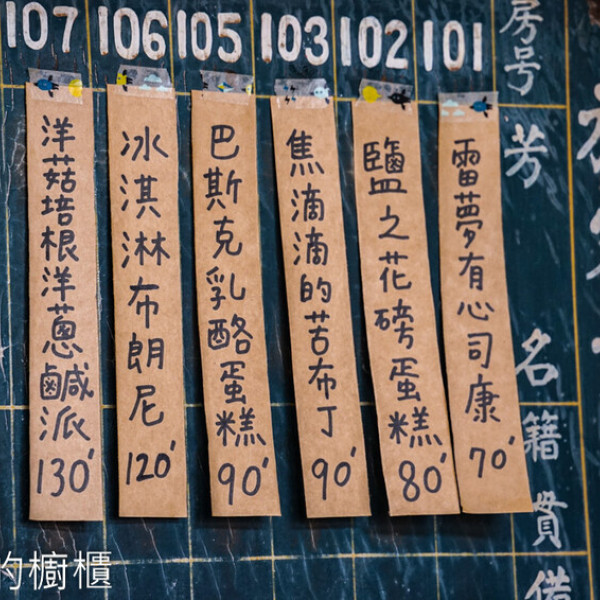 107 106 105 103 102 101
房号
芳
名
籍貫
洋菇培根洋蔥鹹派
130'
冰淇淋布朗尼
120'
巴斯克乳酪蛋糕
90'
焦滴滴的苦布丁
90'
鹽之花磅蛋糕
80'
雷夢有心司康
70'
的櫥櫃